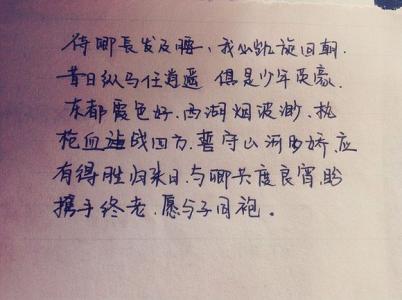 待卿長发及腰，我必凯旋回朝．
昔日纵马任逍遥 俱是少年英豪．
东都霞色好．西湖烟波渺．执
枪血战四方．誓守山河多娇．应
有得胜归来日．与卿共度良宵．盼
携手终老．愿与子同袍。